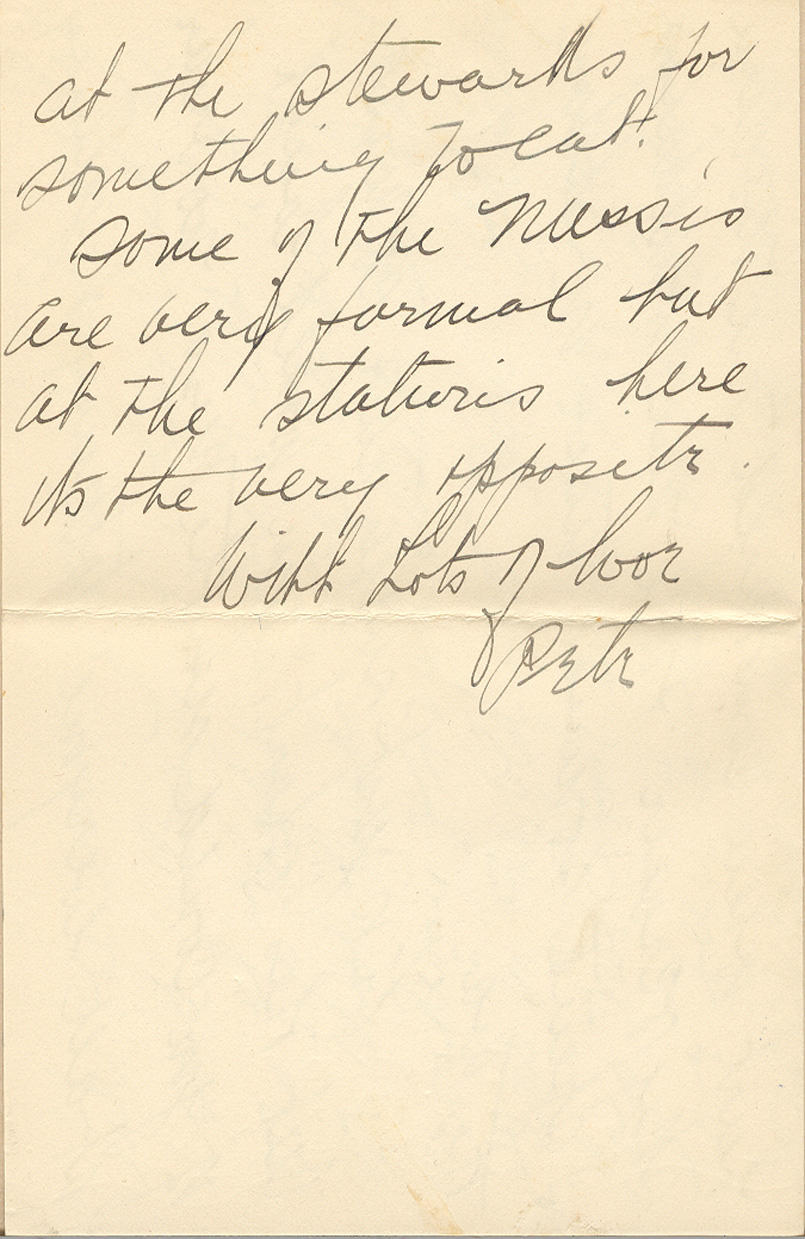 at the stewards for
something to eat.
Some of the Messes
are very formal but
at the stations here
its the very opposite.
With Lots of love
Pete